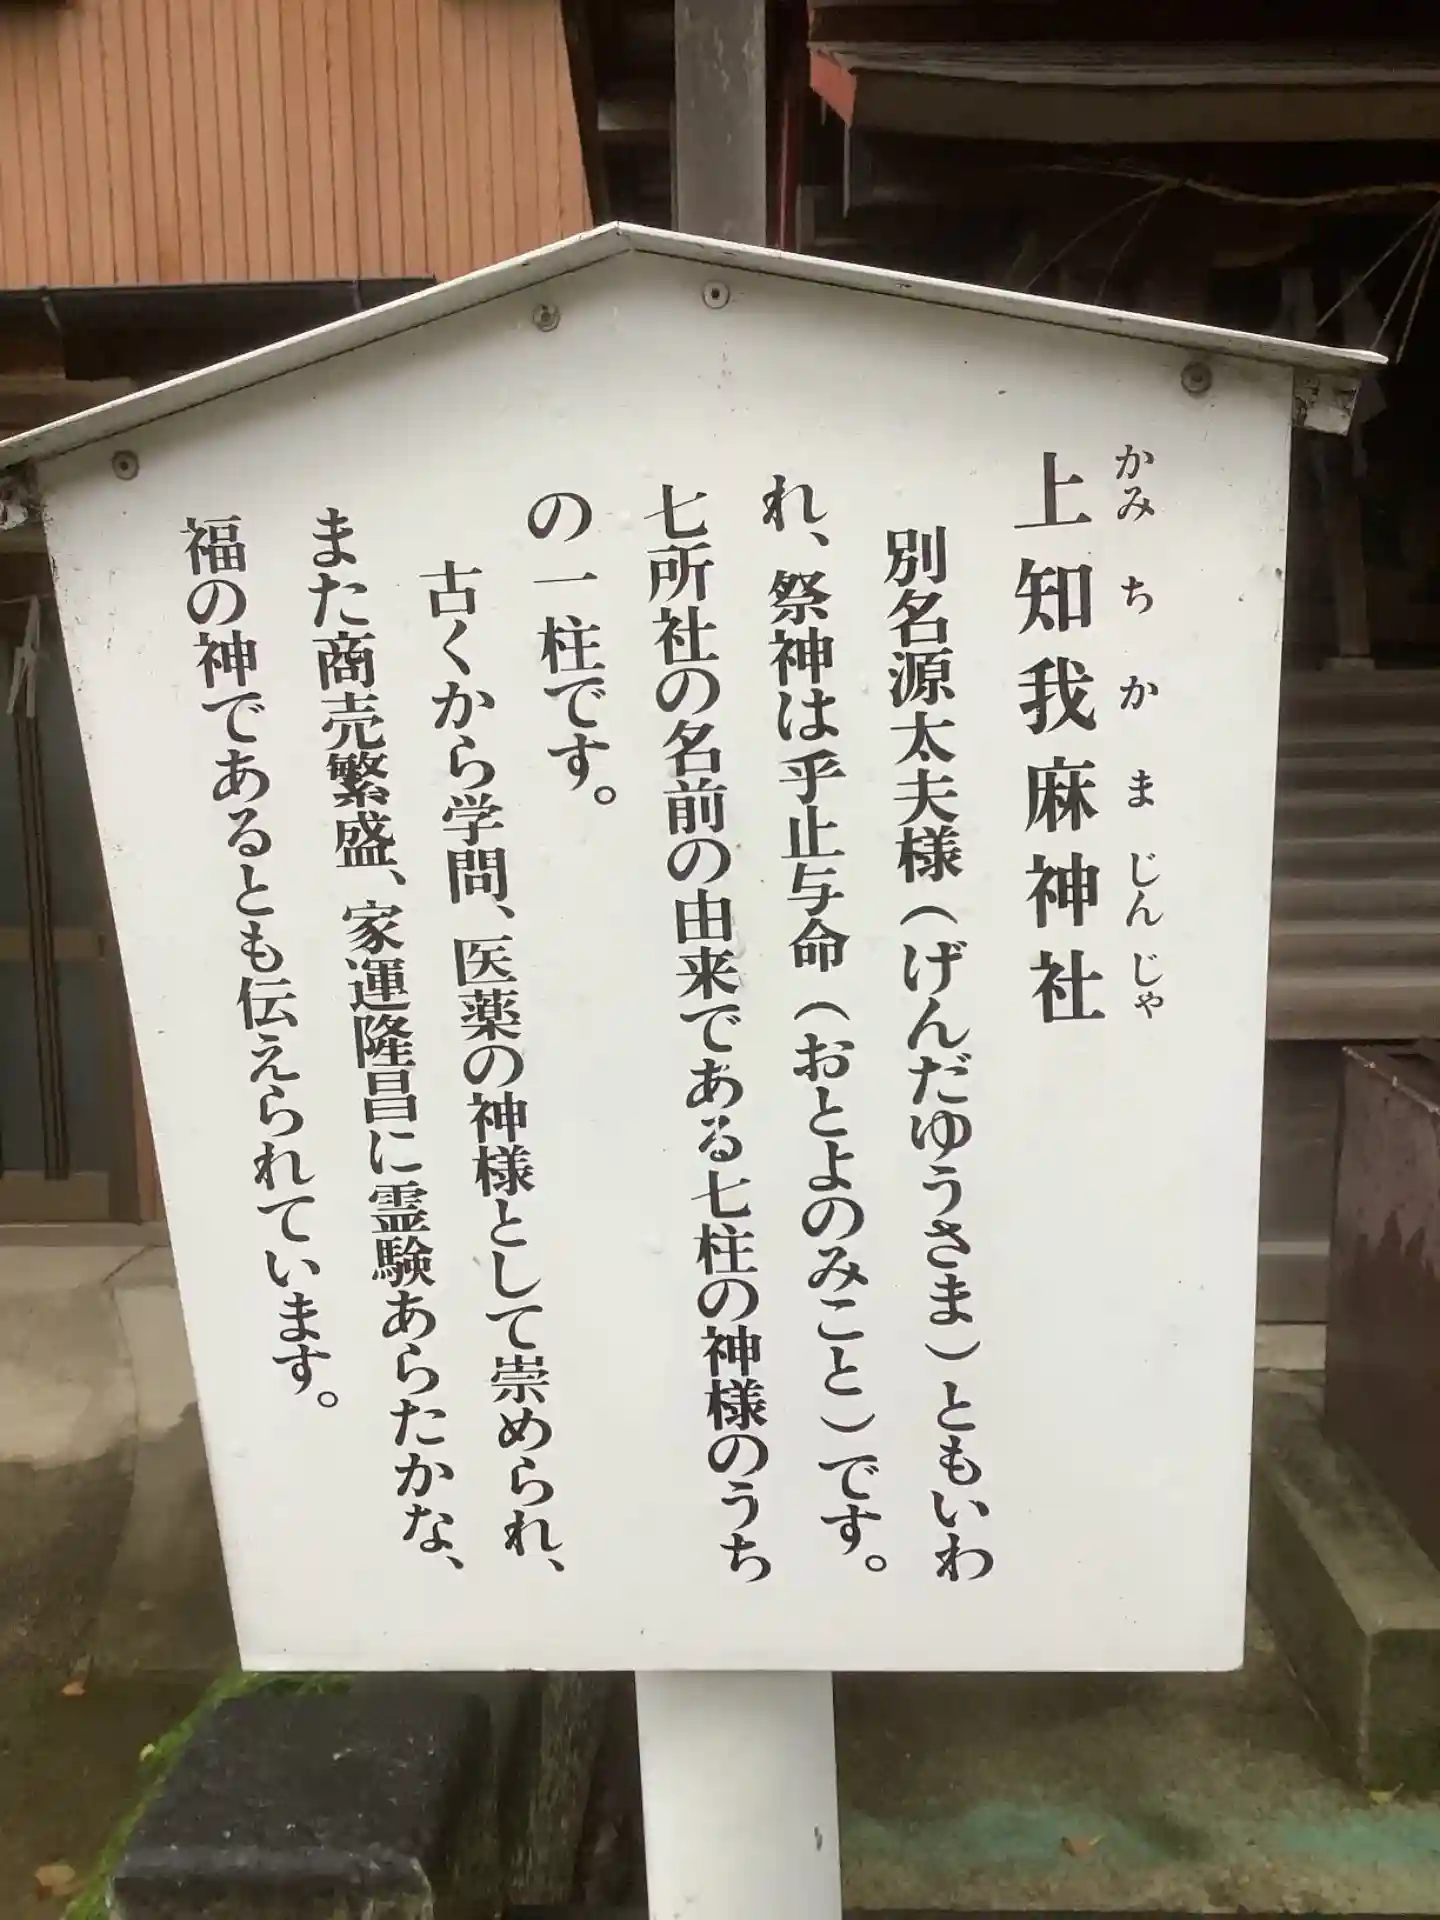 上知我麻神社
かみちかまじんじゃ
別名源太夫様（げんだゆうさま）ともいわ
れ、祭神は乎止与命（おとよのみこと）です。
七所社の名前の由来である七柱の神様のうち
の一柱です。
古くから学問、医薬の神様として崇められ、
また商売繁盛、家運隆昌に霊験あらたかな、
福の神であるとも伝えられています。